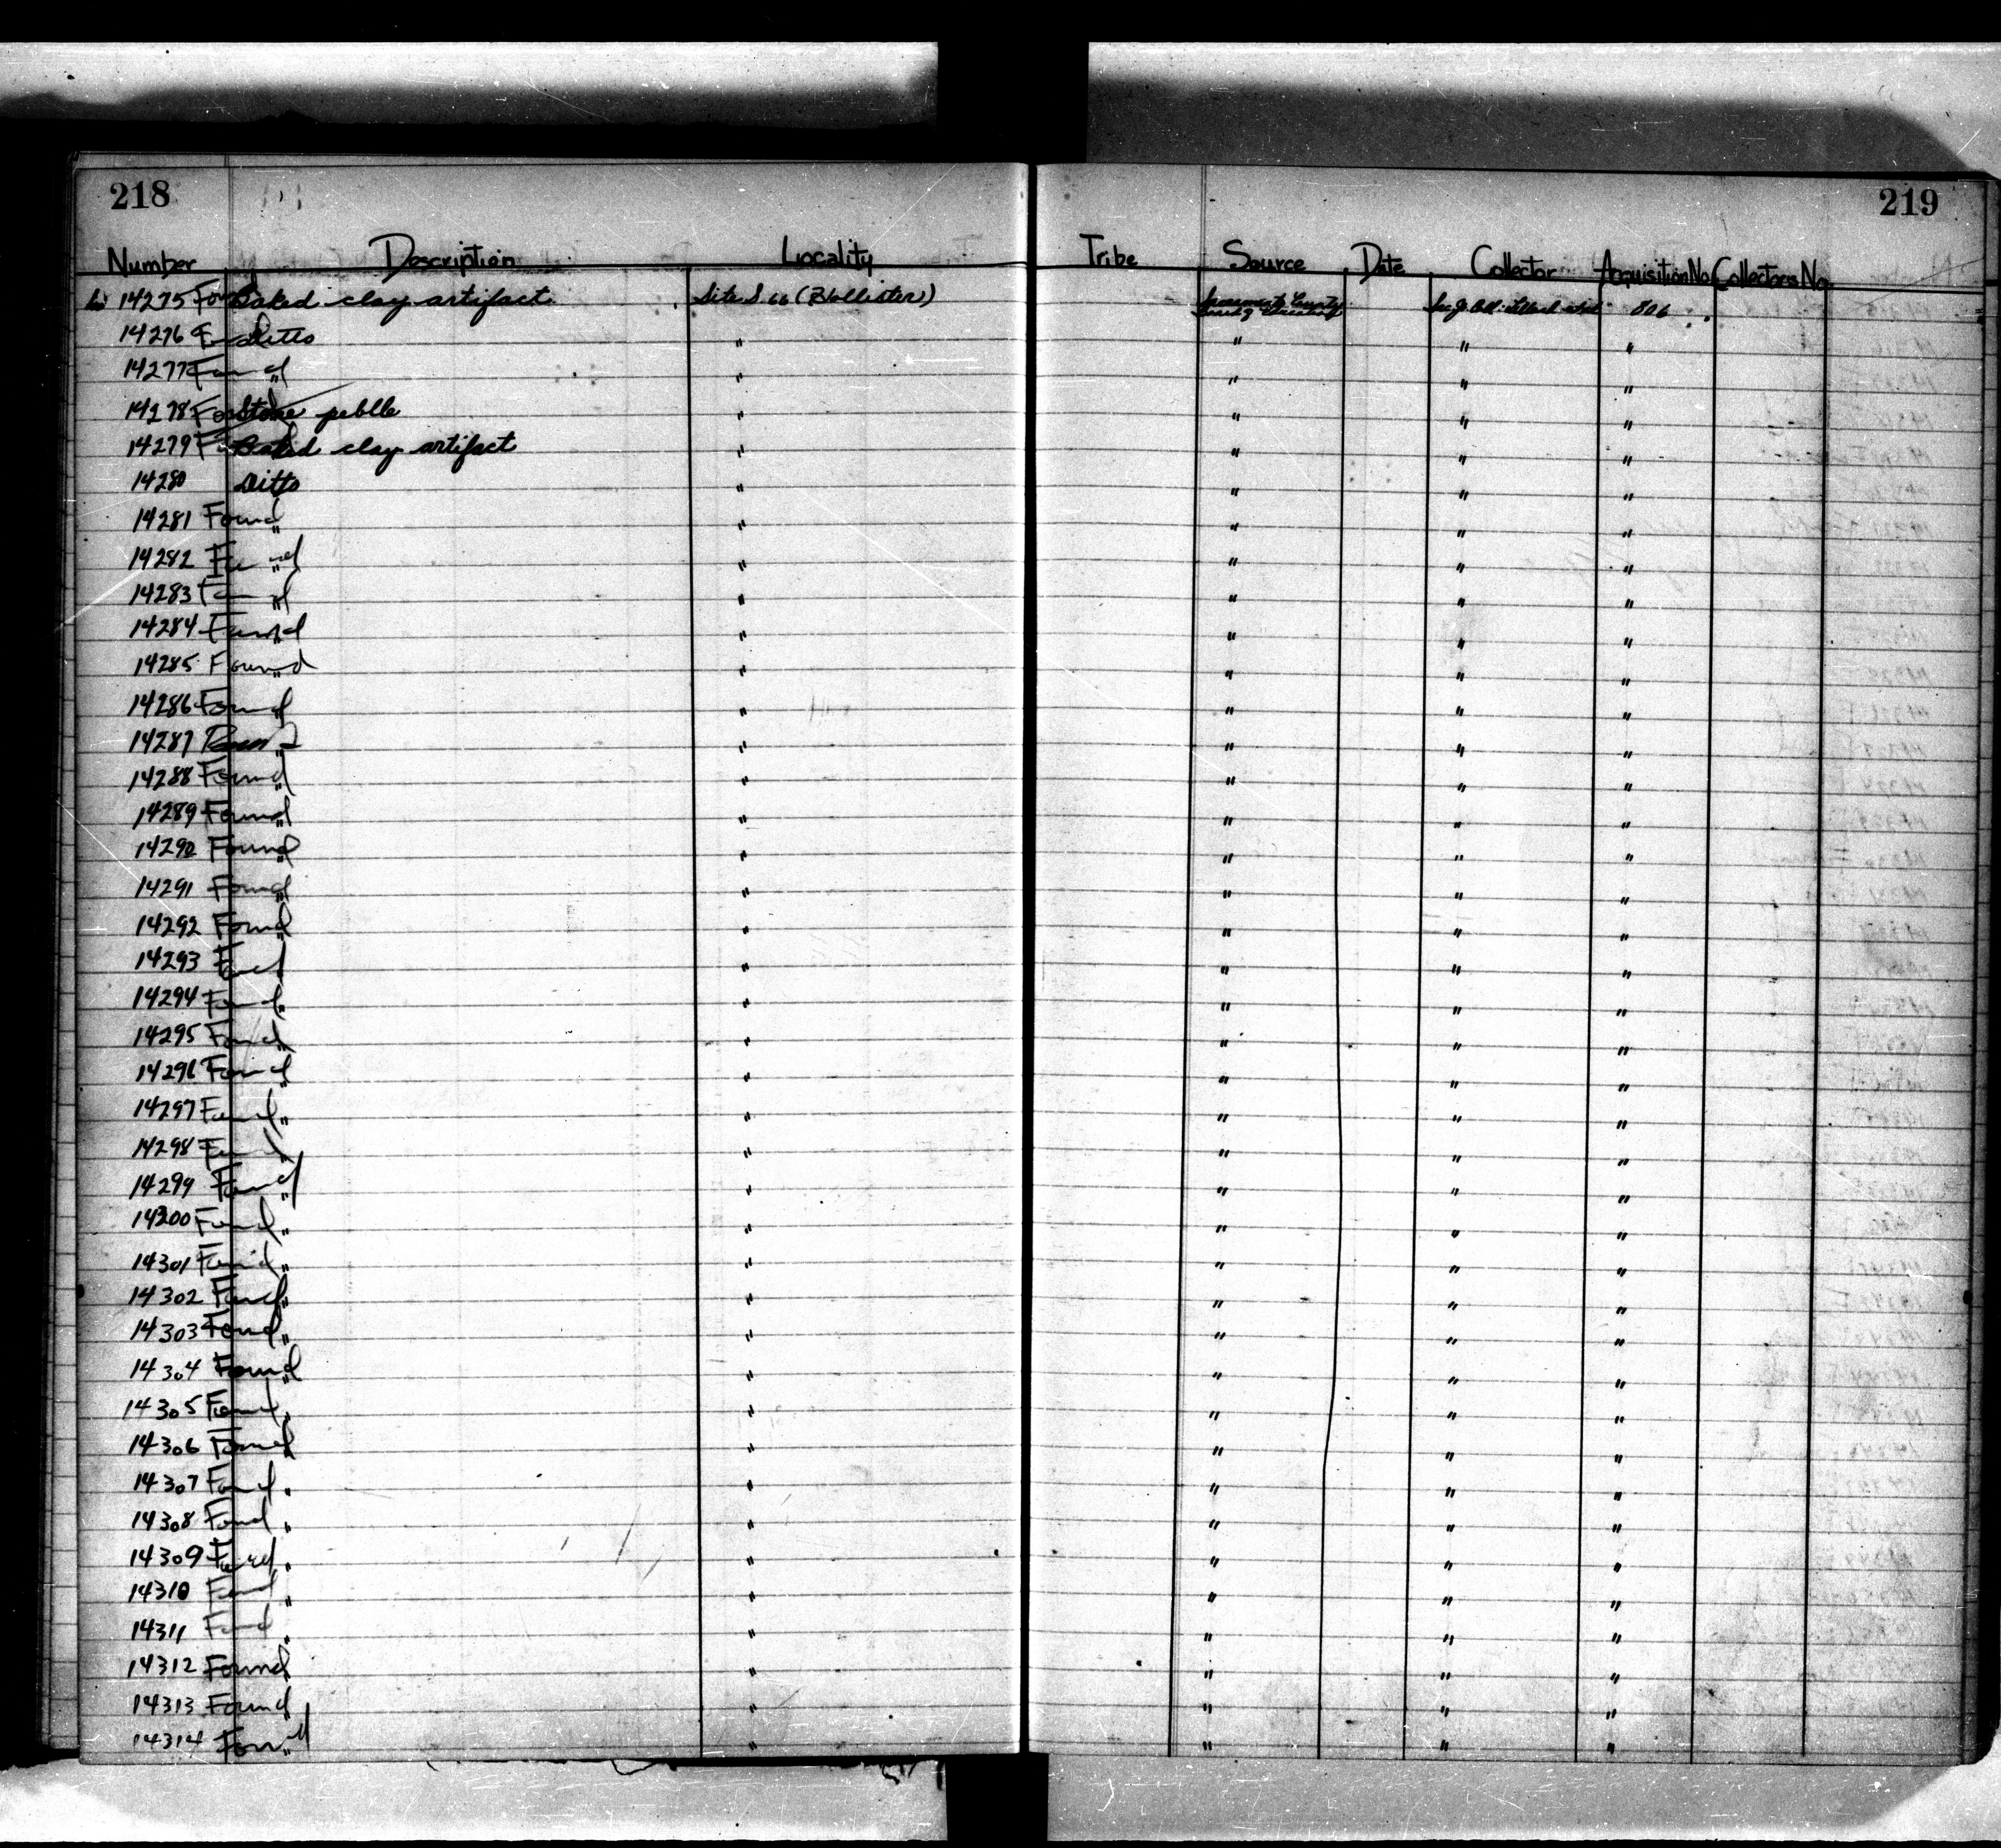 218
219
Number Description Locality Tribe Source Date Collector Acquisition No. Collectors No.
14275 Found Baked clay artifact Site S. 66 (Hollister) Sacramento County 806
14276 Found Ditto " " " "
14277 Found " " " " "
14278 Found Stone pebble " " " "
14279 Found Baked clay artifact " " " "
14280 Ditto " " " "
14281 Found " " " " "
14282 Found " " " " "
14283 Found " " " " "
14284 Found " " " " "
14285 Found " " " " "
14286 Found " " " " "
14287 " " " " "
14288 Found " " " " "
14289 Found " " " " "
14290 Found " " " " "
14291 Found " " " " "
14292 Found " " " " "
14293 Found " " " " "
14294 Found " " " " "
14295 Found " " " " "
14296 Found " " " " "
14297 Found " " " " "
14298 Found " " " " "
14299 Found " " " " "
14300 Found " " " " "
14301 Found " " " " "
14302 Found " " " " "
14303 Found " " " " "
14304 Found " " " " "
14305 Found " " " " "
14306 Found " " " " "
14307 Found " " " " "
14308 Found " " " " "
14309 Found " " " " "
14310 Found " " " " "
14311 Found " " " " "
14312 Found " " " " "
14313 Found " " " " "
14314 Found " " " " "